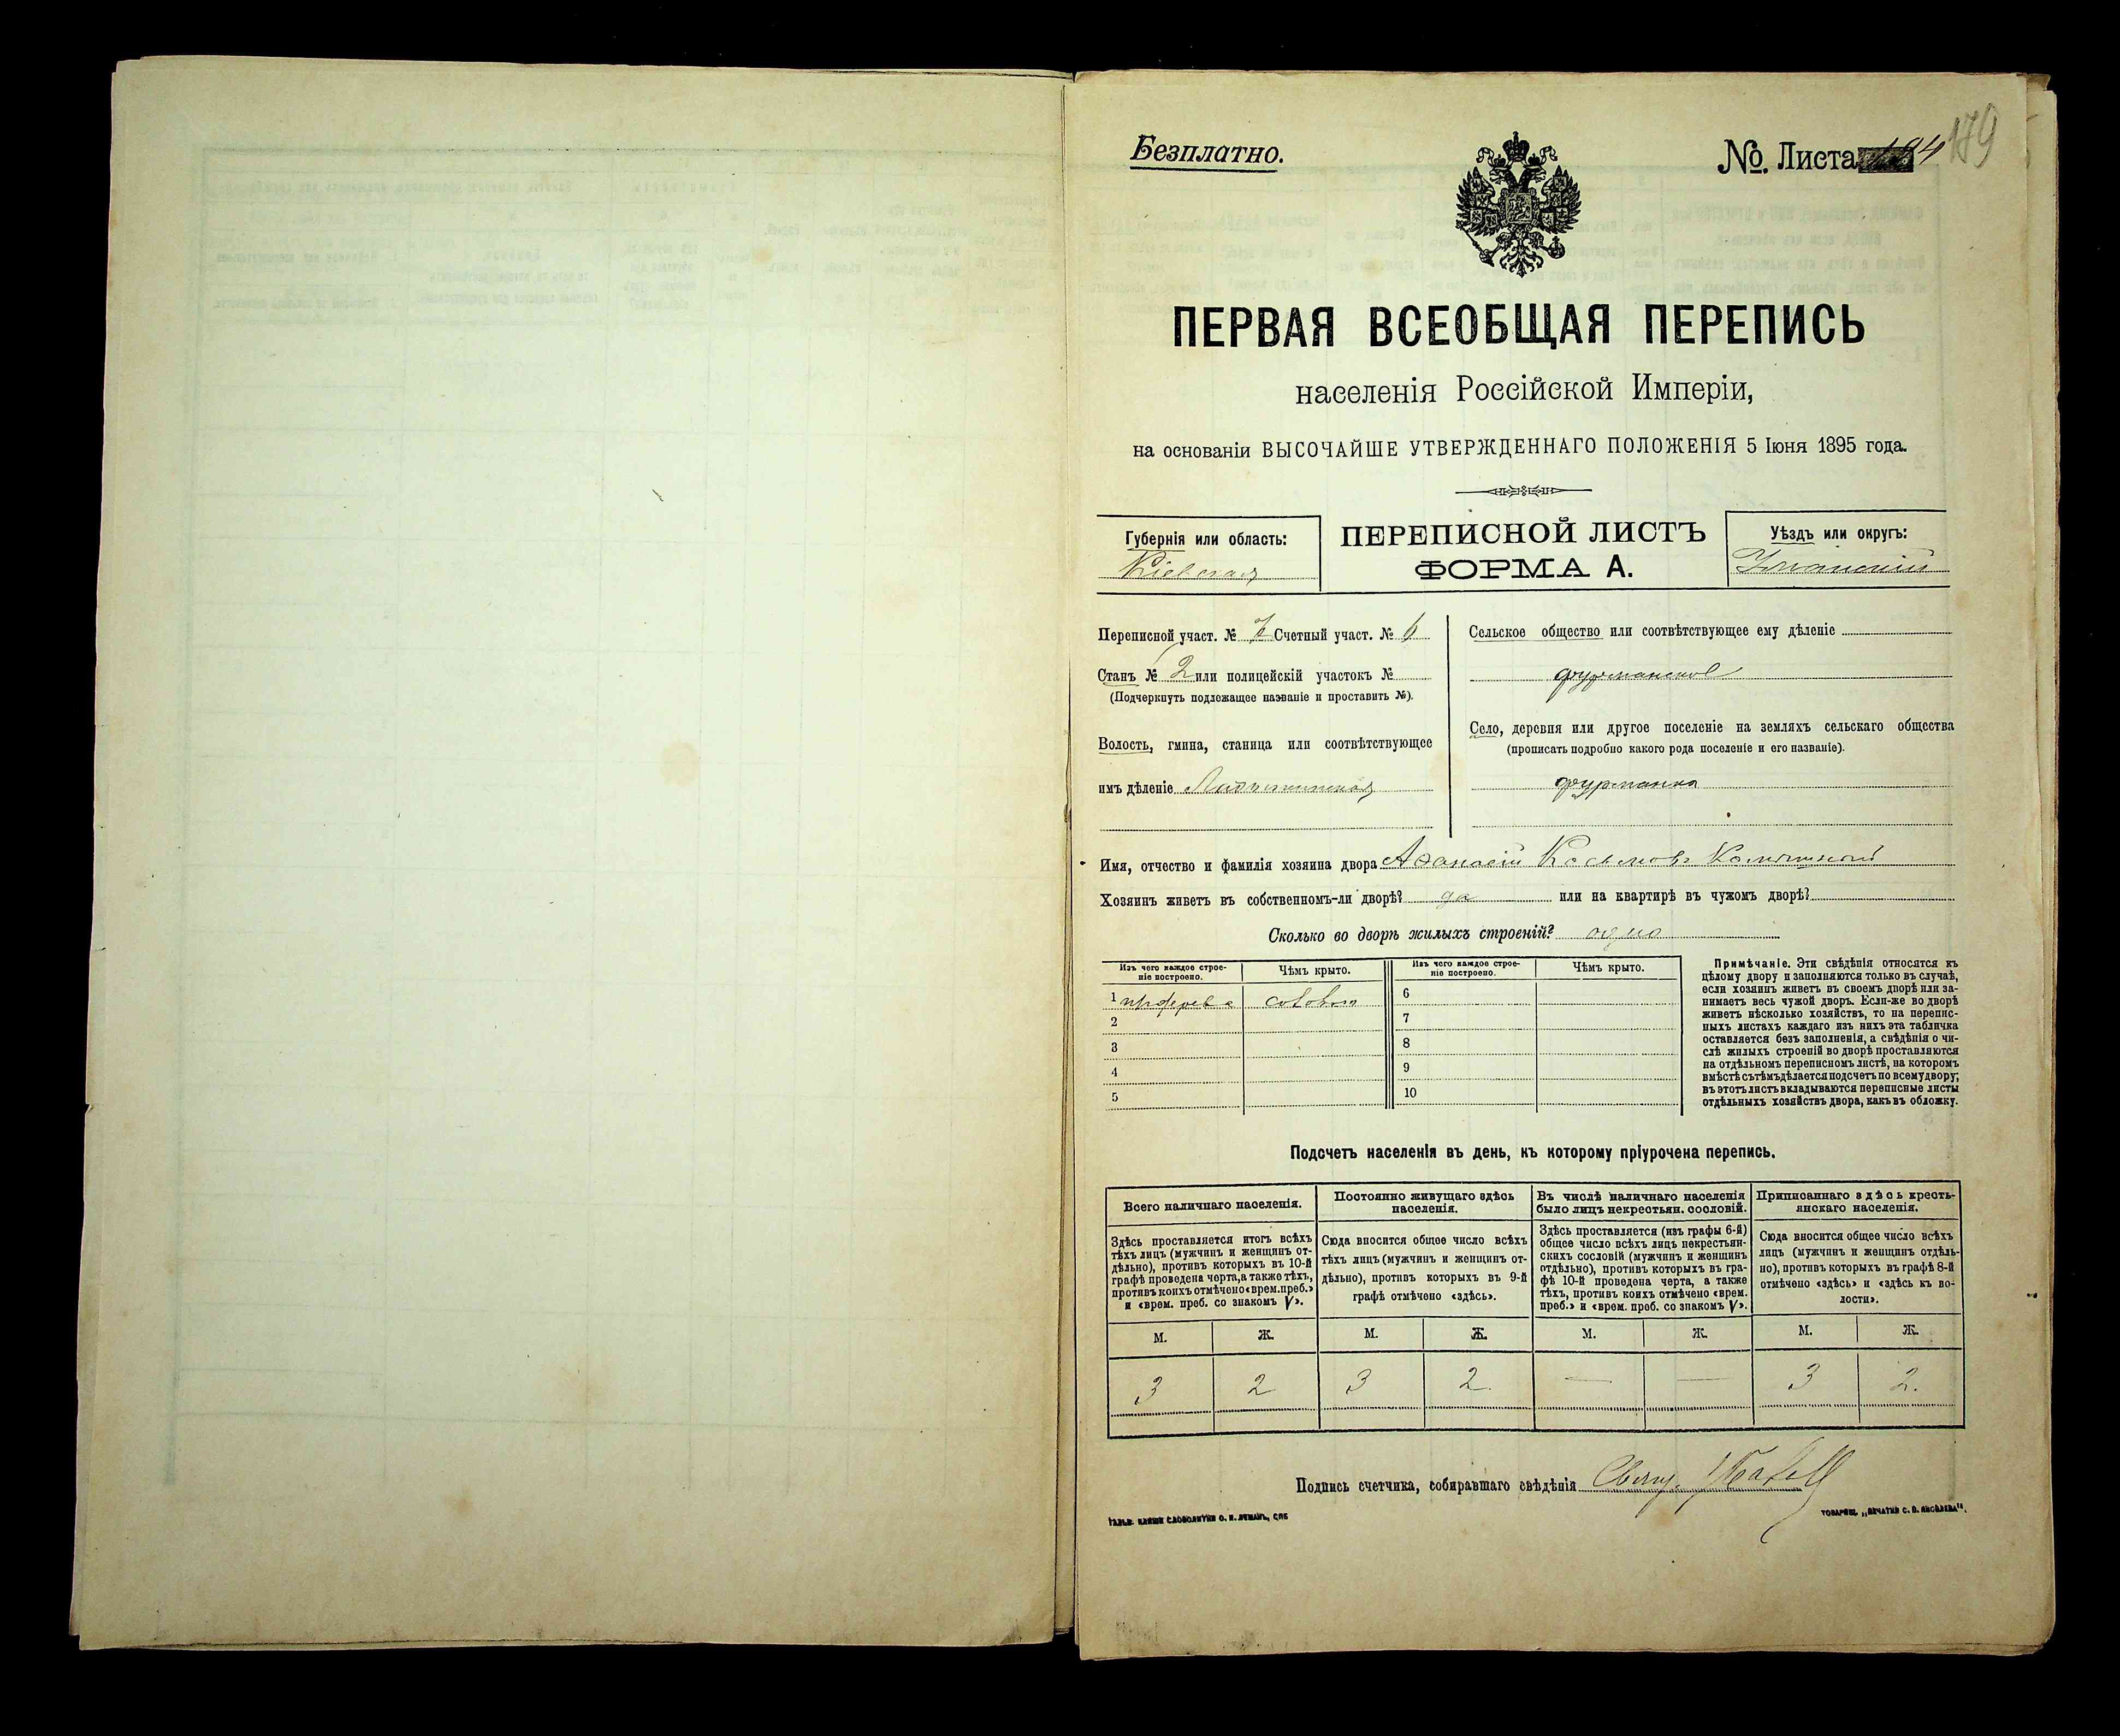 Безплатно.
№ Листа 179
ПЕРВАЯ ВСЕОБЩАЯ ПЕРЕПИСЬ
населенія Россійской Имперіи,
на основаніи ВЫСОЧАЙШЕ УТВЕРЖДЕННАГО ПОЛОЖЕНІЯ 5 Іюня 1895 года.
Губернія или область:
Кіевская
ПЕРЕПИСНОЙ ЛИСТЪ
ФОРМА А.
Уѣздъ или округъ:
Уманскій
Переписной участ. № Счетный участ. № 6
Станъ № 2 или полицейскій участокъ №
(Подчеркнуть подлежащее названіе и проставить №).
Волость, гмина, станица или соотвѣтствующее
имъ дѣленіе
Сельское общество или соотвѣтствующее ему дѣленіе
фурманское
Село, деревня или другое поселеніе на земляхъ сельскаго общества
(прописать подробно какого рода поселеніе и его названіе).
фурманка
Имя, отчество и фамилія хозяина двора Афанасій Косьмовъ
Хозяинъ живетъ въ собственномъ-ли дворѣ? да или на квартирѣ въ чужомъ дворѣ?
Сколько во дворѣ жилыхъ строеній? одно
Изъ чего каждое строе-
ніе построено.
Чѣмъ крыто.
Изъ чего каждое строе-
ніе построено.
Чѣмъ крыто.
1 дерева 6
2 7
3 8
4 9
5 10
Примѣчаніе. Эти свѣдѣнія относятся къ
цѣлому двору и заполняются только въ случаѣ,
если хозяинъ живетъ въ своемъ дворѣ или за-
нимаетъ весь чужой дворъ. Если-же во дворѣ
живетъ нѣсколько хозяйствъ, то на перепис-
ныхъ листахъ каждаго изъ нихъ эта табличка
оставляется безъ заполненія, а свѣдѣнія о чи-
слѣ жилыхъ строеній во дворѣ проставляются
на отдѣльномъ переписномъ листѣ, на которомъ
вмѣстѣ съ тѣмъ дѣлается подсчетъ по всему двору;
въ этотъ листъ вкладываются переписные листы
отдѣльныхъ хозяйствъ двора, какъ въ обложку.
Подсчетъ населенія въ день, къ которому пріурочена перепись.
Всего наличнаго населенія.
Здѣсь проставляется итогъ всѣхъ
тѣхъ лицъ (мужчинъ и женщинъ от-
дѣльно), противъ которыхъ въ 10-й
графѣ проведена черта, а также тѣхъ,
противъ коихъ отмѣчено «врем. преб.»
и «врем. преб. со знакомъ V».
Постоянно живущаго здѣсь
населенія.
Сюда вносится общее число всѣхъ
тѣхъ лицъ (мужчинъ и женщинъ от-
дѣльно), противъ которыхъ въ 9-й
графѣ отмѣчено «здѣсь».
Въ числѣ наличнаго населенія
было лицъ некрестьян. сословій.
Здѣсь проставляется (изъ графы 6-й)
общее число всѣхъ лицъ некрестьян-
скихъ сословій (мужчинъ и женщинъ
отдѣльно), противъ которыхъ въ гра-
фѣ 10-й проведена черта, а также
тѣхъ, противъ коихъ отмѣчено «врем.
преб.» и «врем. преб. со знакомъ V».
Приписаннаго здѣсь кресть-
янскаго населенія.
Сюда вносится общее число всѣхъ
лицъ (мужчинъ и женщинъ отдѣль-
но), противъ которыхъ въ графѣ 8-й
отмѣчено «здѣсь» и «здѣсь къ во-
лости».
М. Ж. М. Ж. М. Ж. М. Ж.
3 2 3 2 — — 3 2.
Подпись счетчика, собиравшаго свѣдѣнія